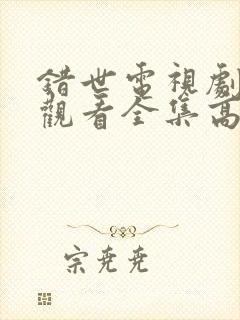 錯世電視劇
觀看全集高
宗尭尭